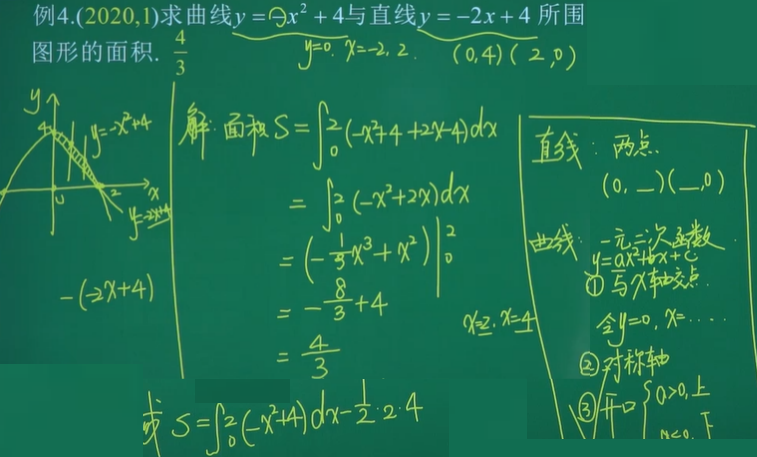 例4.(2020,1)求曲线y = -x² + 4与直线y = -2x + 4 所围
图形的面积. 4/3
y=0. x=-2, 2.
(0,4) (2,0)
y
4
y=-x²+4
x
0
2
y=-2x+4
-(-2x+4)
解: 面积 S = ∫₀² (-x²+4+2x-4)dx
= ∫₀² (-x²+2x)dx
= (-1/3 x³ + x²) |₀²
= -8/3 + 4
= 4/3
或 S = ∫₀² (-x²+4) dx - 1/2·2·4
x=2, x=4
直线: 两点.
(0, _) (_, 0)
曲线: 一元二次函数
y=ax²+bx+c
① 与x轴交点.
令y=0, x=....
② 对称轴
③ 开口 { a>0, 上
a<0, 下